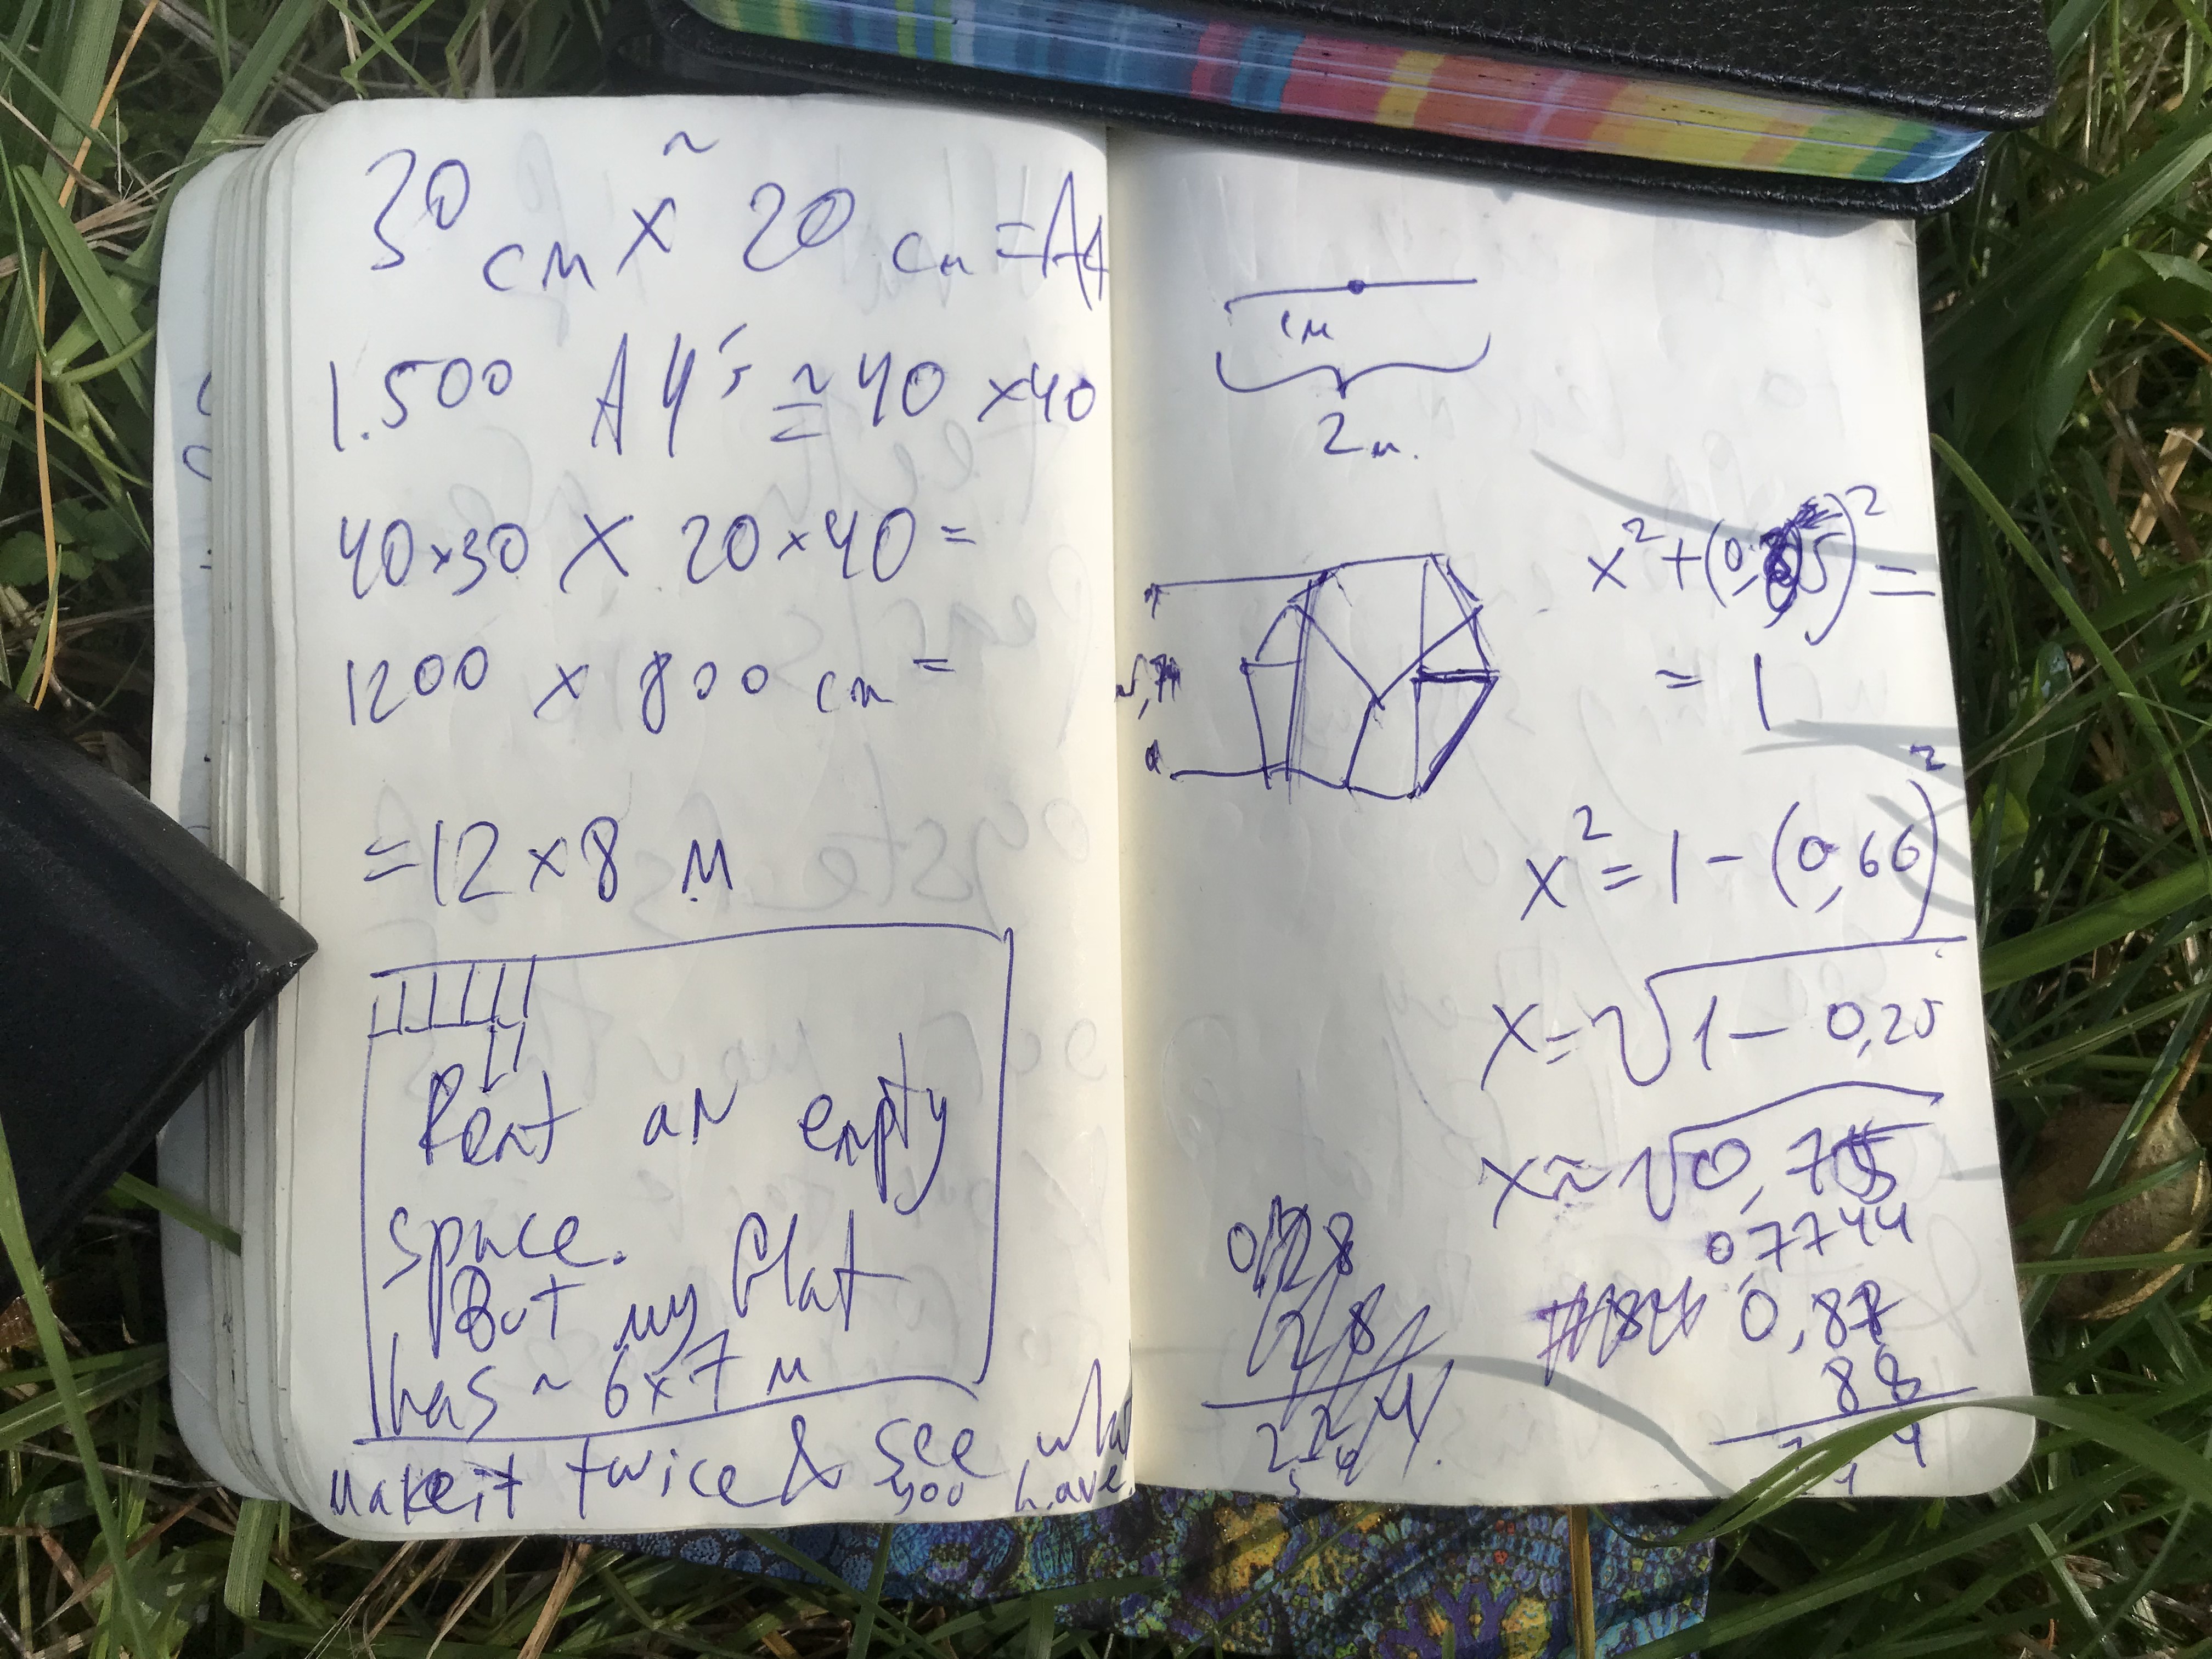 30 см x ~ 20 см = A4
1.500 A4's ≅ 40 x 40
40 x 30 X 20 x 40 =
1200 x 800 см =
= 12 x 8 м
Rent an empty
space.
But my flat
has ~ 6 x 7 м
make it twice & see
you have
1 м
2 м.
x² + (0,5)² =
= 1²
x² = 1 - (0,66)
x = √1 - 0,25
x ≈ √0,75
0,744
0,87
88